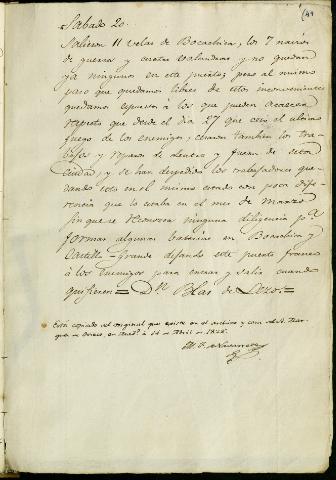 (49
Sabado 20.
Salieron 11 velas de Bocachica, los 7 navios
de guerra y quatro valandras y no quedan
ya ningunos en este puerto; pero al mismo
paso que quedamos libres de estos inconvenientes
quedamos expuestos à los que pueden acaecer
respeto que desde el dia 27 que cesò el ultimo
fuego de los enemigos, cesaron tambien los tra-
bajos y reparos de dentro y fuera de esta
ciudad; y se han despedido los trabajadores que-
dando esto en el mismo estado con poca dife-
rencia que lo estaba en el mes de Marzo
sin que se reconozca ninguna diligencia pª
formar algunas baterias en Bocachica y
Castillo-Grande dejando este puerto franco
à los enemigos para entrar y salir cuando
quisieren = Dn Blas de Lezo. =
Està copiado del original que existe en el archivo
de Abril de 1828.
M. F. de Navarrete